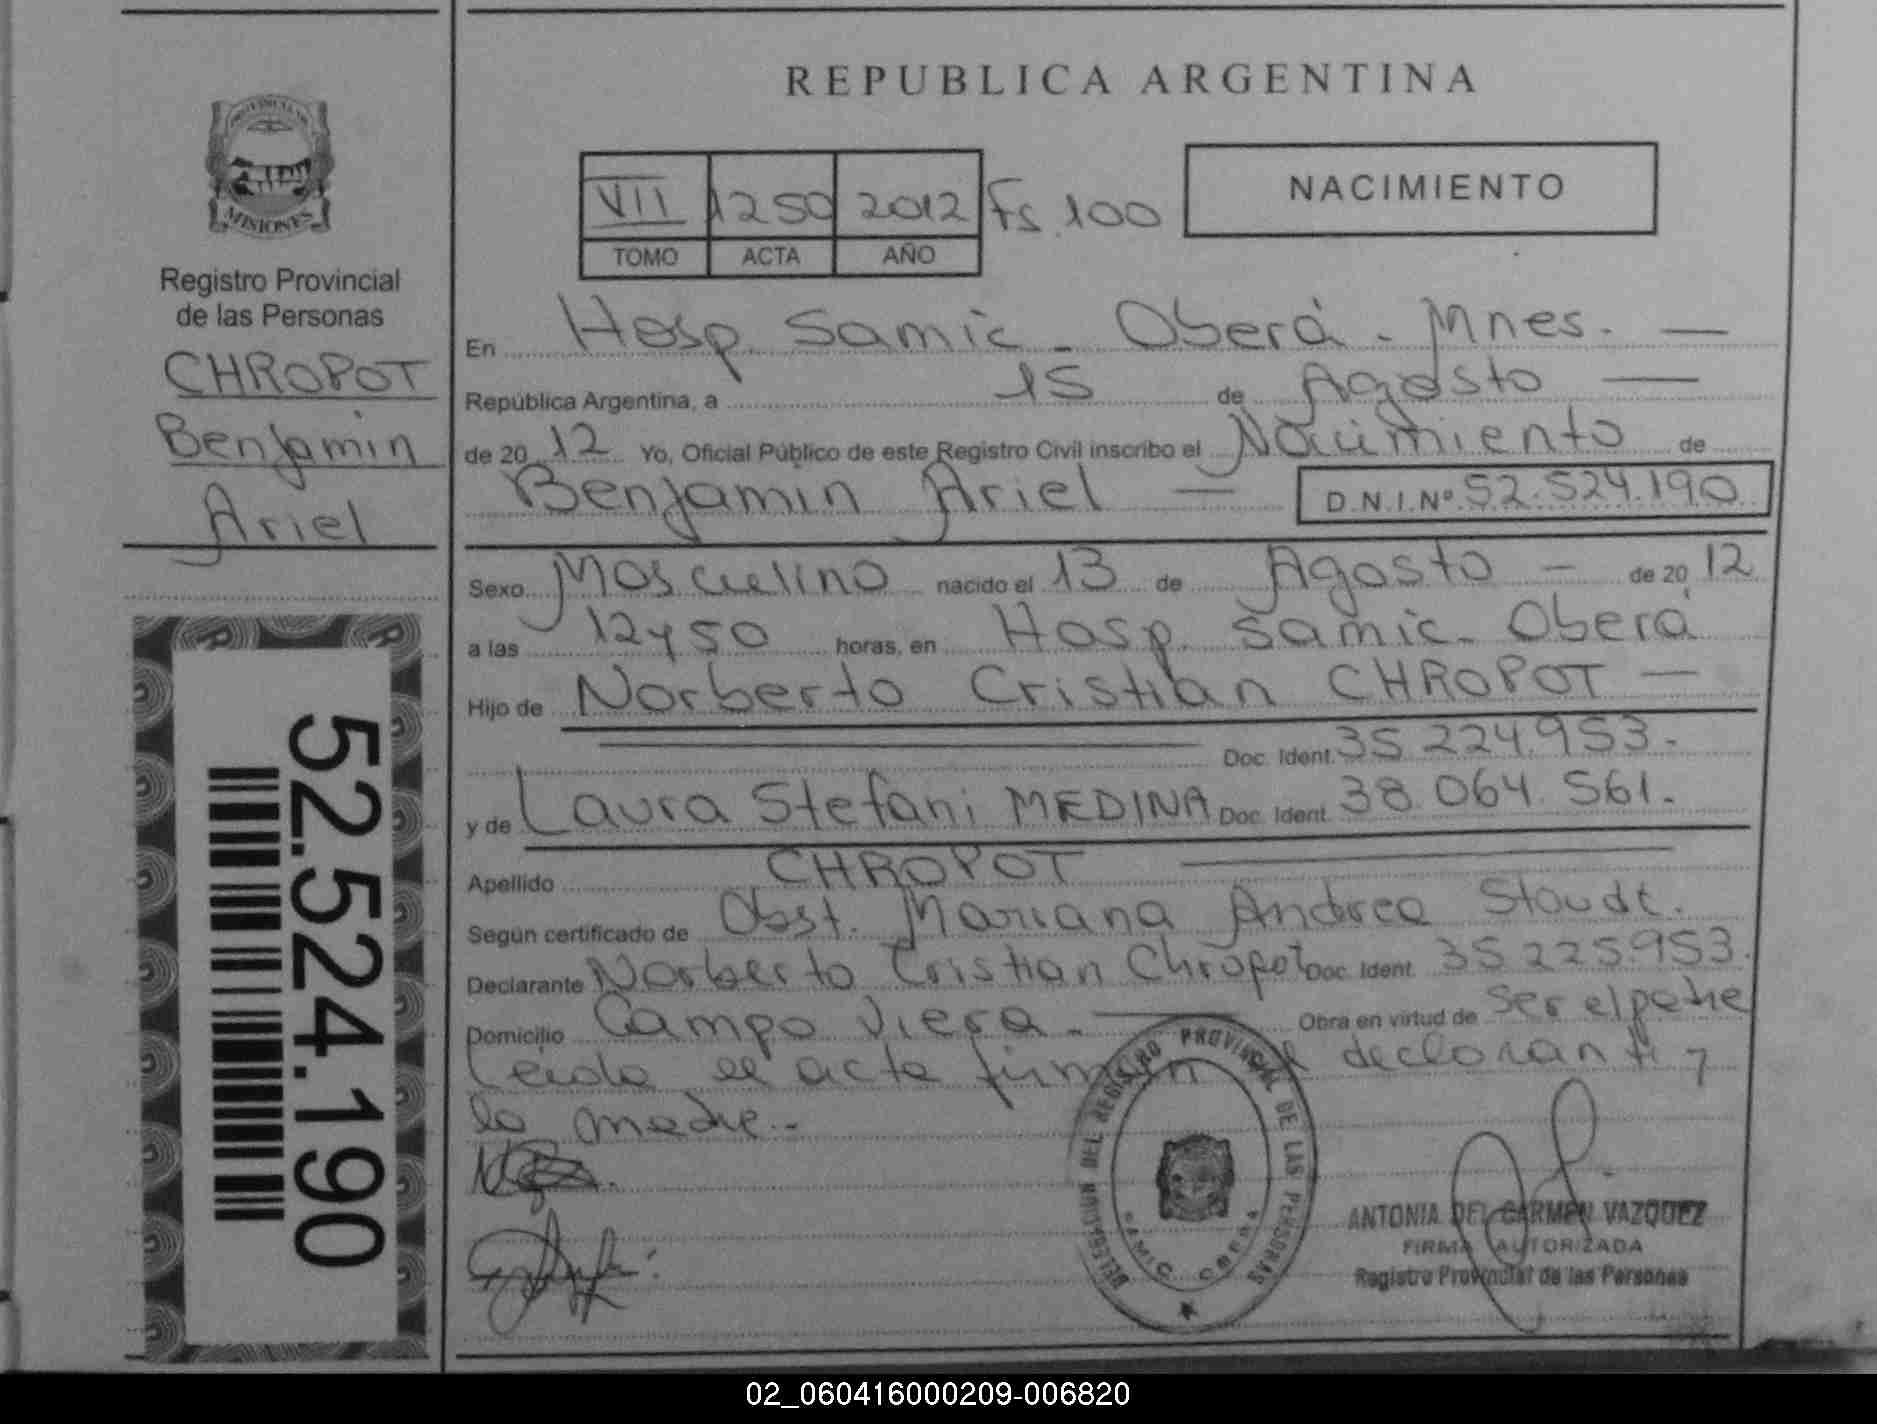 REPUBLICA ARGENTINA
PROVINCIA DE
MISIONES
Registro Provincial
de las Personas
CHROPOT
Benjamin
Ariel
52.524.190
VII 1250 2012 Fs. 100
TOMO ACTA AÑO
NACIMIENTO
En Hosp. Samic - Oberá - Mnes. —
República Argentina, a 15 de Agosto —
de 20 12 Yo, Oficial Público de este Registro Civil inscribo el Nacimiento de
Benjamin Ariel — D.N.I.Nº 52.524.190
Sexo Masculino nacido el 13 de Agosto — de 20 12
a las 12 y 50 horas, en Hosp. Samic - Oberá
Hijo de Norberto Cristian CHROPOT —
Doc. Ident. 35.224.953.-
y de Laura Stefani MEDINA Doc. Ident. 38.064.561.-
Apellido CHROPOT
Según certificado de Obst. Mariana Andrea Staudt.
Declarante Norberto Cristian Chropot Doc. Ident. 35.225.953.
Domicilio Campo Viera. - Obra en virtud de ser el padre
Leida el acta firman el declarante y
la madre.-
DELEGACION DEL REGISTRO PROVINCIAL DE LAS PERSONAS
SAMIC OBERA
ANTONIA DEL CARMEN VAZQUEZ
FIRMA AUTORIZADA
Registro Provincial de las Personas
02_060416000209-006820